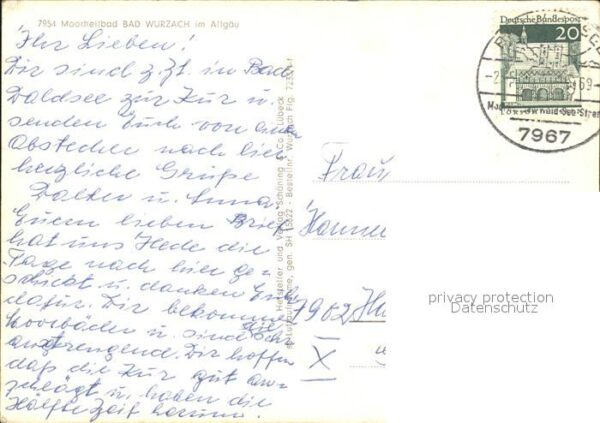 7954 Moorheilbad BAD WURZACH im Allgäu
Ihr Lieben!
Wir sind z. Zt. in Bad
Waldsee zur Kur u.
senden Euch von einem
Abstecher nach hier
herzliche Grüße
Walter u. Anna
Euren lieben Brief
hat uns Hede die
Tage nach hier ge-
schickt u. danken Euch
dafür. Wir bekommen
Moorbäder u. sind sehr
anstrengend. Wir hoffen
daß die Kur gut an-
schlägt u. haben die
Hälfte Zeit herum.
Hersteller und Verlag Schöning & Co., Lübeck
gen. SH 15622 - Bestellnr. Wurzach Flg.
Frau
Hanne
7902
X
Deutsche Bundespost
20
69
7967
privacy protection
Datenschutz